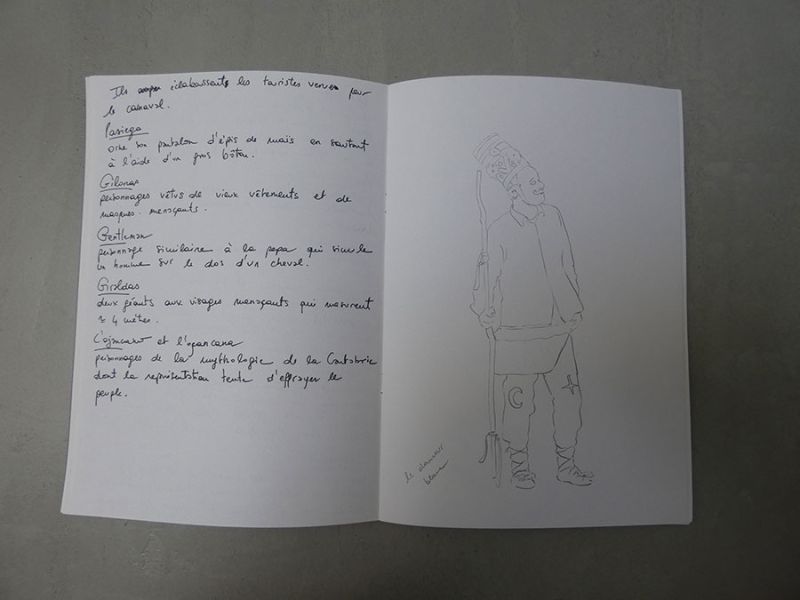 Ils éclaboussent les touristes venus pour
le carnaval.
Pasiego
orne son pantalon d'épis de maïs en sautant
à l'aide d'un gros bâton.
Gilonas
personnages vêtus de vieux vêtements et de
masques menaçants.
Gentleman
personnage similaire à la pepa qui simule
un homme sur le dos d'un cheval.
Giraldas
deux géants aux visages menaçants qui mesurent
4 mètres.
L'ojancano et l'ojancana
personnages de la mythologie de la Cantabrie
dont la représentation tente d'effrayer le
peuple.
le danseur
blanc